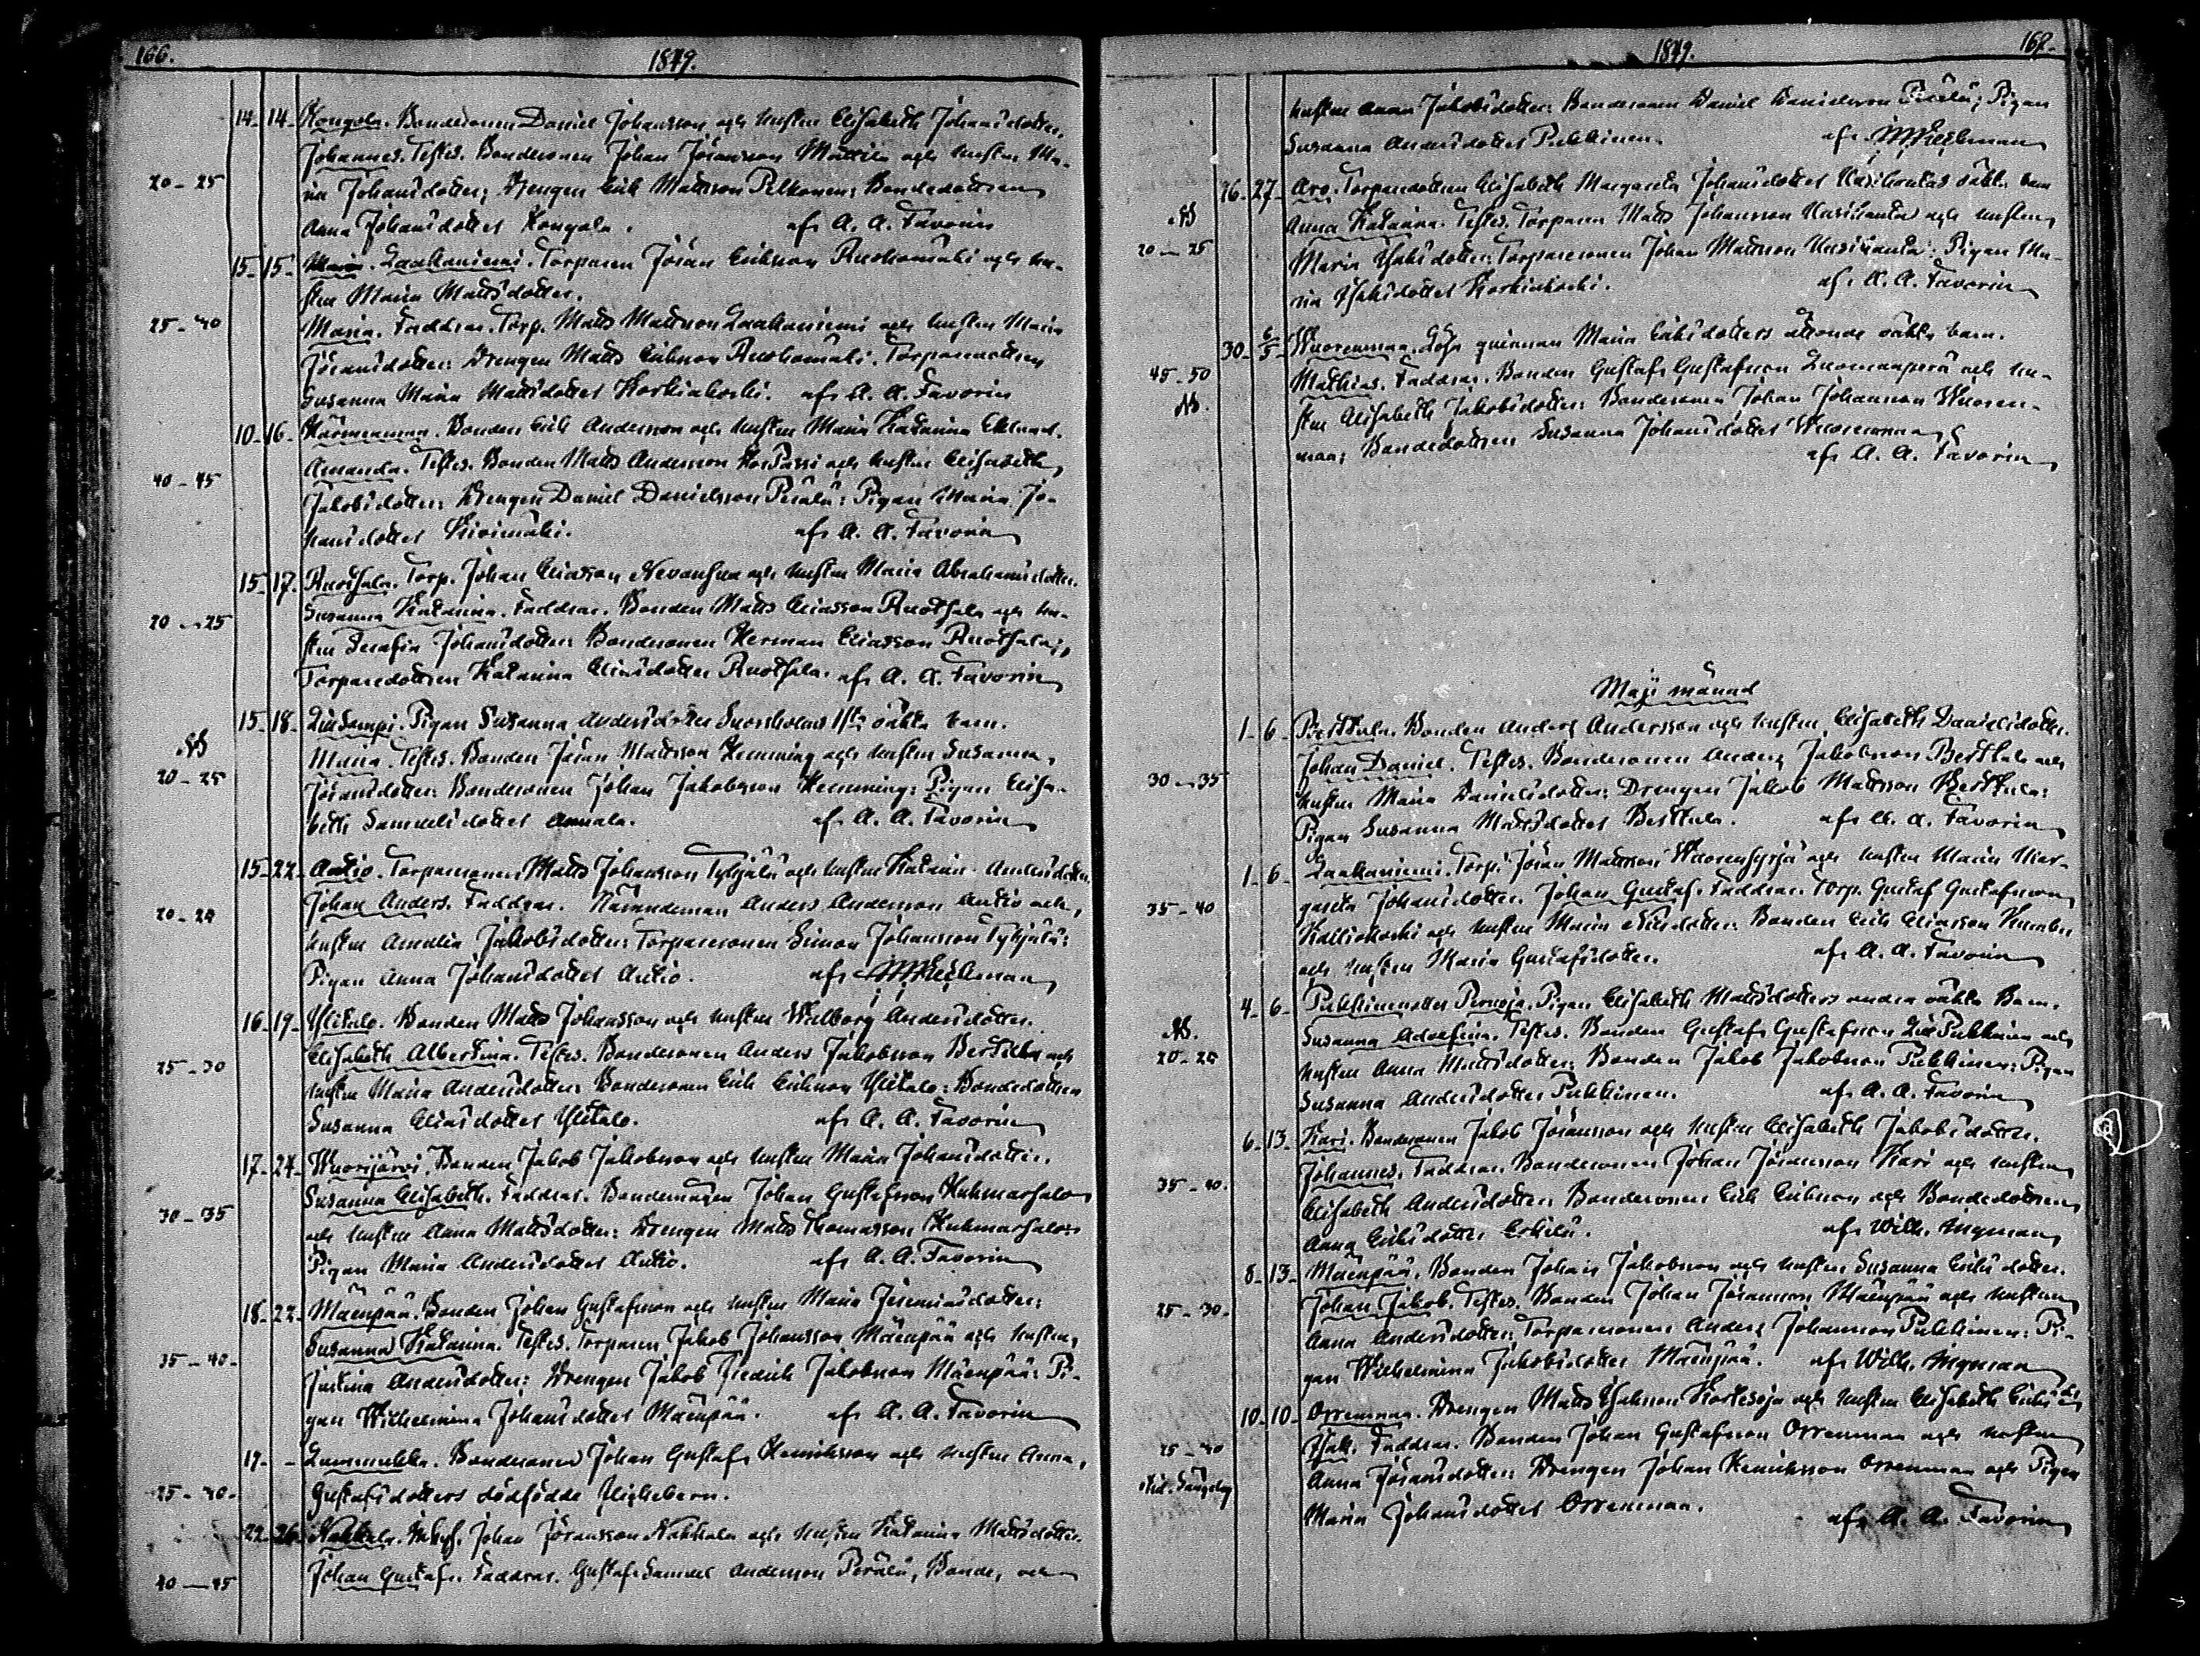 166.
1849.
14-14- Kongola. Bondesonen Daniel Johansson och hustru Elisabeth Johansdotter.
Johannes. Testes. Bondesonen Johan Jöransson Mattila och hustru Ma-
20-25
ria Johansdotter; Drengen Erik Mattsson Pelkonen; Bondedottren
Anna Johansdotter Kongola. af A. A. Favorin
15-15- Laakaniemi. Torparen Jöran Eriksson Ruohomäki och hu-
stru Maria Mattsdotter.
25-40
Maria. Faddrar. Torp. Matts Mattsson Laakaniemi och hustru Maria
Jöransdotter: Drengen Matts Eriksson Ruohomäki: Torparedottren
Susanna Maria Mattsdotter Korkiakoski. af A. A. Favorin
10-16- Bonden Erik Andersson och hustru Maria Katarina Eklund.
Amanda. Testes. Bonden Matts Andersson och hustru Elisabeth
40-45
Jakobsdotter: Drengen Daniel Danielsson Perälä: Pigan Maria Jo-
hansdotter Kivimäki. af A. A. Favorin
15-17- Ruotsala. Torp. Johan Eliasson och hustru Maria Abrahamsdotter.
Susanna Katarina. Faddrar. Bonden Matts Eliasson Ruotsala och hu-
20-25
stru Serafia Johansdotter: Bondesonen Herman Eliasson Ruotsala;
Torparedottren Katarina Eliasdotter Ruotsala. af A. A. Favorin
15-18- Pigan Susanna Andersdotter 1sta oäkta barn.
Maria. Testes. Bonden Jöran Mattsson Hemming och hustru Susanna
20-25
Jöransdotter: Bondesonen Johan Jakobsson Hemming: Pigan Elisa-
beth Samuelsdotter Annala. af A. A. Favorin
15-22- Autio. Torparesonen Matts Johansson Tyhjälä och hustru Katarina Andersdotter.
Johan Anders. Faddrar. Nämndeman Anders Andersson Autio och
20-25
hustru Amalia Jakobsdotter: Torparesonen Simon Johansson Tyhjälä:
Pigan Anna Johansdotter Autio. af
16-19- Ylitalo. Bonden Matts Johansson och hustru Walborg Andersdotter.
Elisabeth Albertina. Testes. Bondesonen Anders Jakobsson och
25-30
hustru Maria Andersdotter: Bondesonen Erik Eriksson Ylitalo: Bondedottren
Susanna Eliasdotter Ylitalo. af A. A. Favorin
17-24- Wuorijärvi. Bonden Jakob Jakobsson och hustru Maria Johansdotter.
Susanna Elisabeth. Faddrar. Bondemågen Johan Gustafsson Kuhmasalo
30-35
och hustru Anna Mattsdotter: Drengen Matts Thomasson Kuhmasalo:
Pigan Maria Andersdotter Autio. af A. A. Favorin
18-22- Mäenpää. Bonden Johan Gustafsson och hustru Maria Jeremiasdotter:
Susanna Katarina. Testes. Torparen Jakob Johansson Mäenpää och hustru
35-40-
Justina Andersdotter: Drengen Jakob Fredrik Jakobsson Mäenpää: Pi-
gan Wilhelmina Johansdotter Mäenpää. af A. A. Favorin
17- - Lammukka. Bondesonen Johan Gustaf Henriksson och hustru Anna
25-30-
Gustafsdotters dödfödde flickebarn.
22-26- Johan Jöransson och hustru Katarina Mattsdotter.
40-45
Johan Gustaf. Faddrar. Gustaf Samuel Andersson Perälä, Bonde, och
1849.
167.
hustru Anna Jakobsdotter: Bondesonen Daniel Danielsson Perälä; Pigan
Susanna Andersdotter Pukkinen. af
26-27- Aro. Torparedottren Elisabeth Margareta Johansdotter oäkta barn
Anna Katarina. Testes. Torparen Matts Johansson och hustru
20-25
Maria Isaksdotter: Torparesonen Johan Mattsson: Pigan Ma-
ria Isaksdotter Korkiakoski. af A. A. Favorin
30- 6/5- Wuorenmaa. Lösa quinnan Maria Eriksdotters åttonde oäkta barn.
45-50
Mathias. Faddrar. Bonden Gustaf Gustafsson Luomanperä och hu-
stru Elisabeth Jakobsdotter: Bondesonen Johan Johansson Wuoren-
maa; Bondedottren Susanna Johansdotter Wuorenmaa
af A. A. Favorin
Maji månad
1-6- Berttula. Bonden Anders Andersson och hustru Elisabeth Danielsdotter.
Johan Daniel. Testes. Bondesonen Anders Jakobsson Berttula och
30-35
hustru Maria Danielsdotter: Drengen Jakob Mattsson Berttula:
Pigan Susanna Mattsdotter Berttula. af A. A. Favorin
1-6- Laakaniemi. Torp. Jöran Mattsson och hustru Maria Mar-
35-40
gareta Johansdotter. Johan Gustaf. Faddrar. Torp. Gustaf Gustafsson
Kalliokoski och hustru Maria Nilsdotter: Bonden Erik Eliasson
och hustru Maria Gustafsdotter. af A. A. Favorin
4-6- Pigan Elisabeth Mattsdotters andra oäkta barn.
Susanna Adolfina. Testes. Bonden Gustaf Gustafsson Pukkinen och
20-25
hustru Anna Mattsdotter: Bonden Jakob Jakobsson Pukkinen: Pigan
Susanna Andersdotter Pukkinen. af A. A. Favorin
6-13- Kari. Bondesonen Jakob Jöransson och hustru Elisabeth Jakobsdotter.
Johannes. Faddrar. Bondesonen Johan Jöransson Kari och hustru
35-40.
Elisabeth Andersdotter: Bondesonen Erik Eriksson och Bondedottren
Anna Eriksdotter Eskilä. af Wilh. Ingman
8-13- Mäenpää. Bonden Johan Jakobsson och hustru Susanna Eriksdotter.
Johan Jakob. Testes. Bonden Johan Jöransson Mäenpää och hustru
25-30-
Anna Andersdotter: Torparesonen Anders Johansson Pukkinen: Pi-
gan Wilhelmina Jakobsdotter Mäenpää. af Wilh. Ingman
10-10- Orrenmaa. Drengen Matts Isaksson Kortesoja och hustru Elisabeth
Isak. Faddrar. Bonden Johan Gustafsson Orrenmaa och hustru
Anna Jöransdotter: Drengen Johan Henriksson Orrenmaa och Pigan
Maria Johansdotter Orrenmaa. af A. A. Favorin